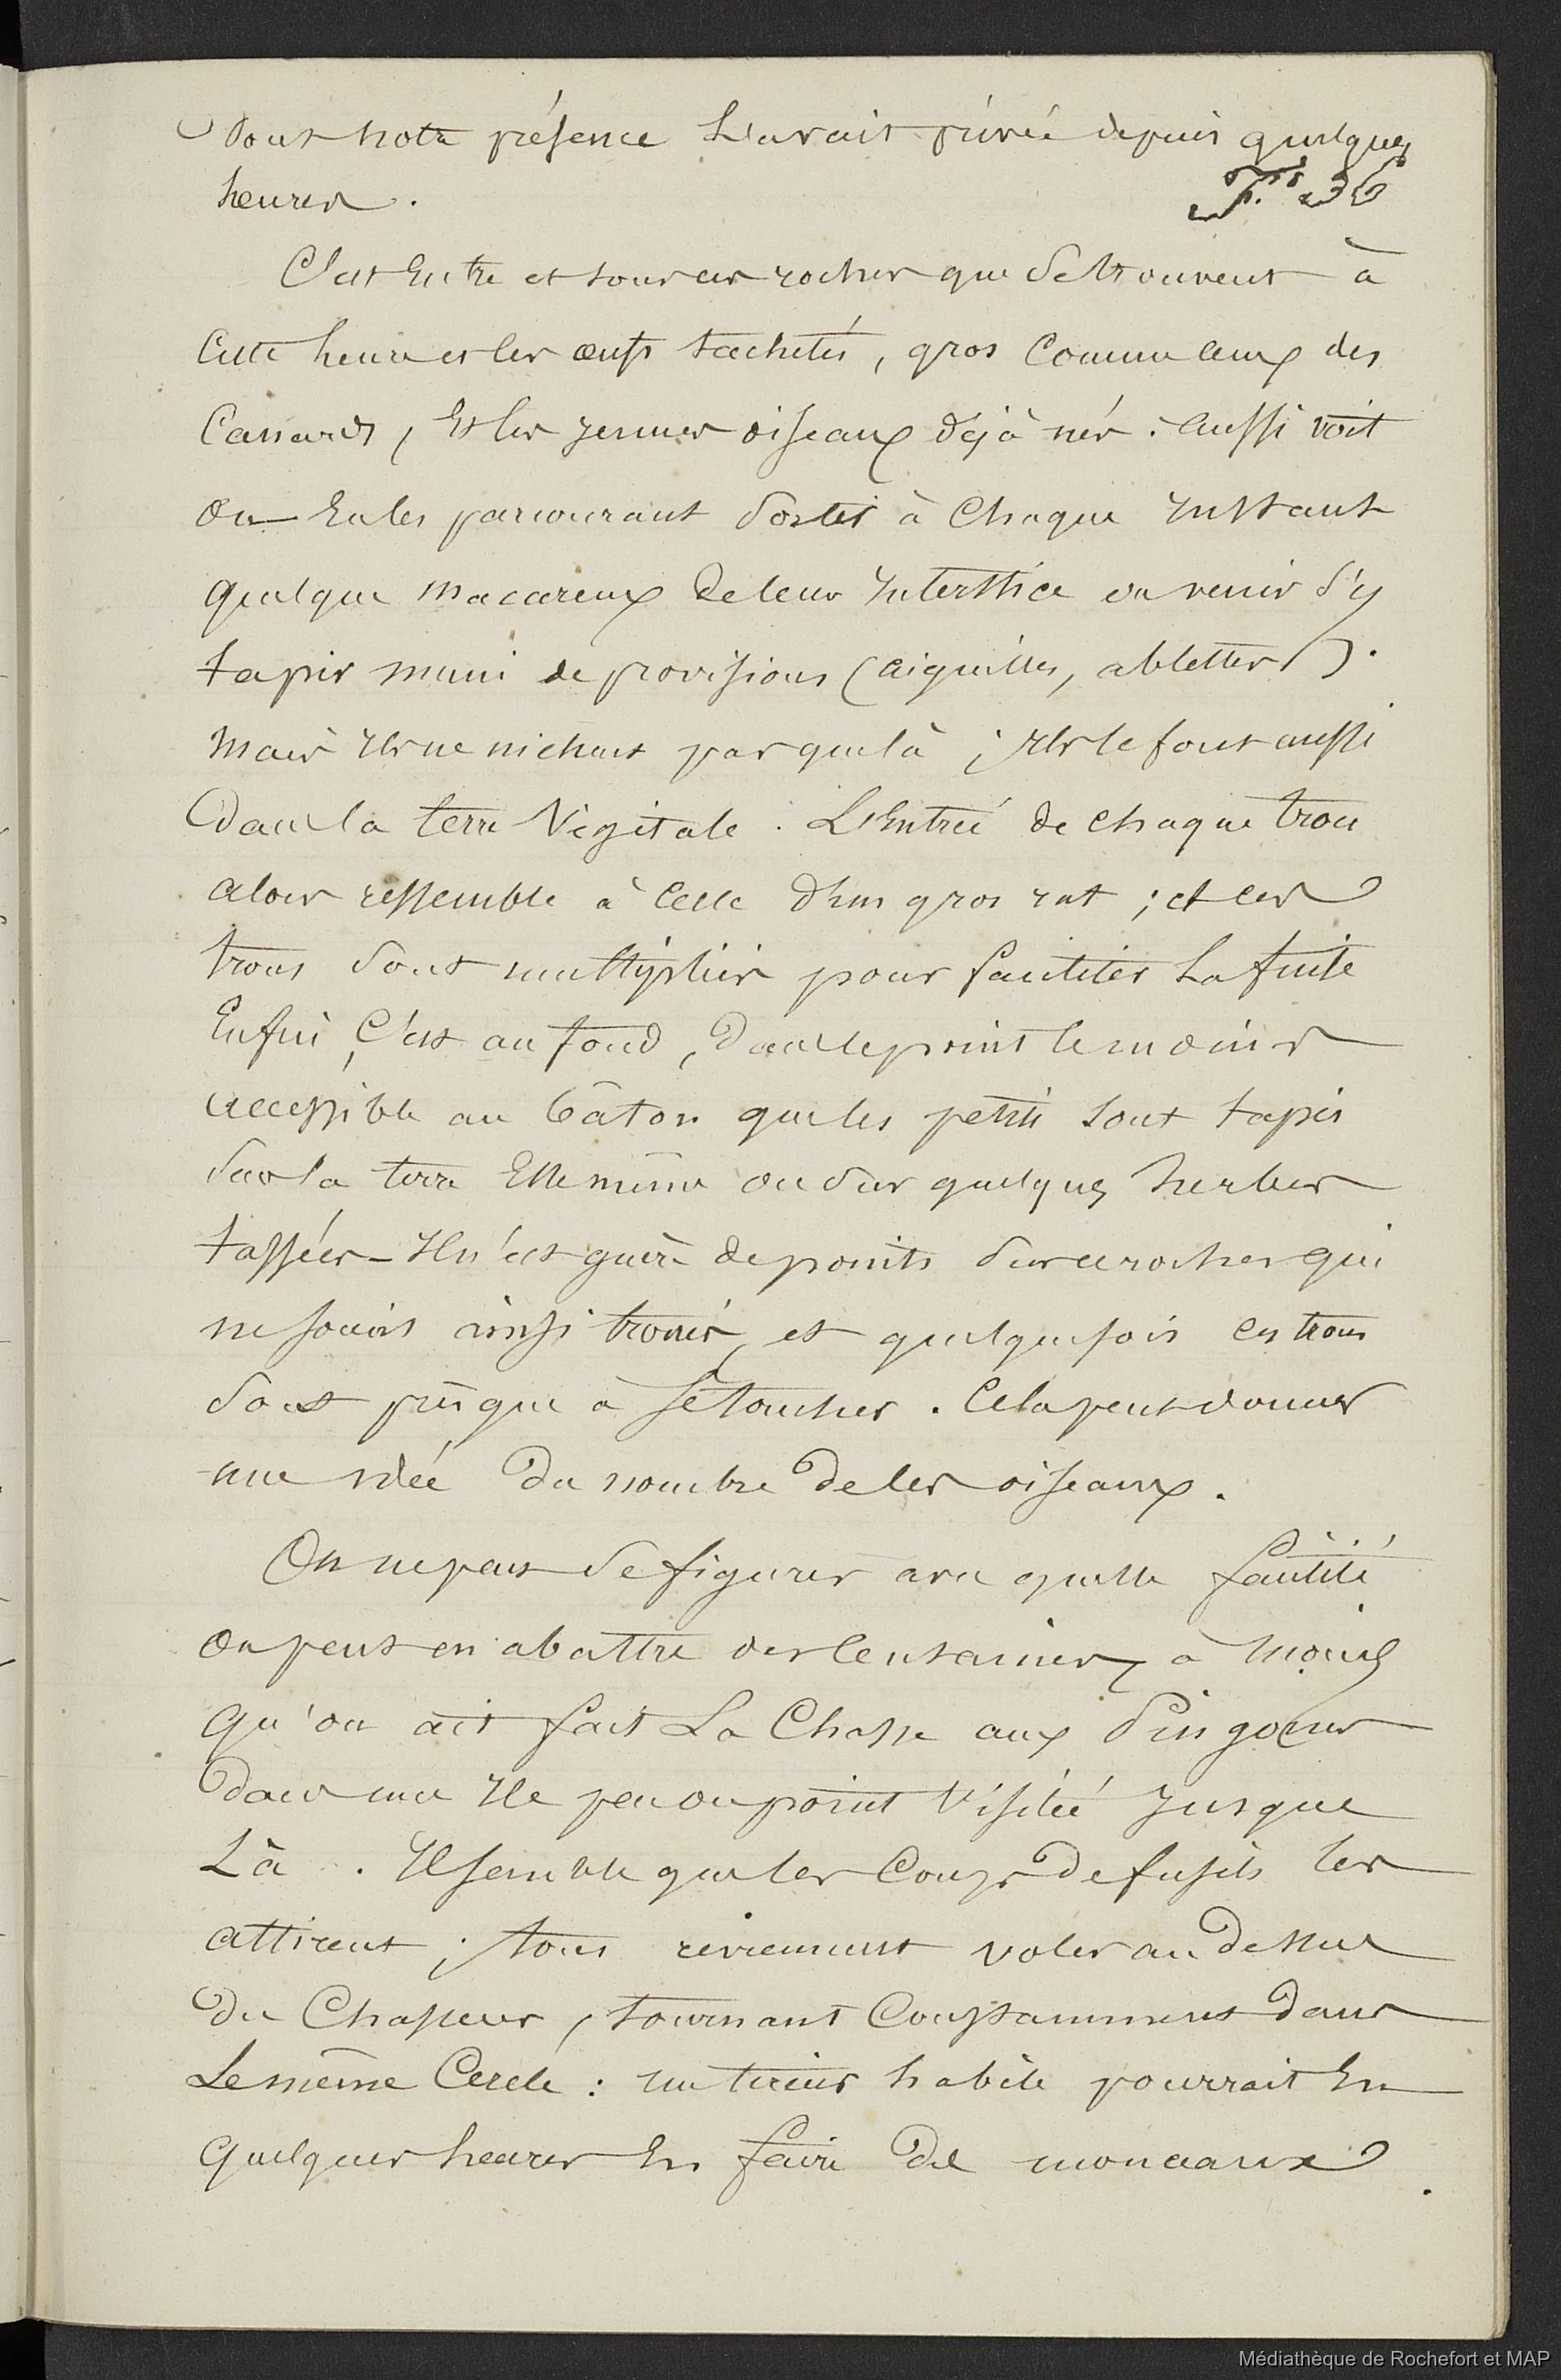 dont notre présence l'avait privée depuis quelques
heures.
F.os 36
C'est Entre et sous ces rochers que se trouvent à
Cette heure et les œufs tachetés, gros Comme Ceux des
Canards, Et les jeunes oiseaux déjà nés : aussi voit
on En les parcourant Sortir à Chaque Instant
quelque macareux de leur Interstice ou venir s'y
tapir muni de provisions (aiguilles, ablettes).
Mais Ils ne nichent pas que là ; Ils le font aussi
Dans la terre Végétale. L'Entrée de chaque trou
alors ressemble à Celle d'un gros rat ; et ces
trous sont multipliés pour faciliter La fuite
Enfin, C'est au fond, Dans le point le moins
accessible au bâton que les petits sont tapis
sur la terre Elle même ou sur quelques herbes
tassées - Il n'est guère de points sur ce rocher qui
ne soient ainsi troués, et quelquefois ces trous
sont presque à se toucher. Cela peut donner
une idée Du nombre de ces oiseaux.
On ne peut se figurer avec quelle facilité
on peut en abattre des Centaines, à moins
qu'on ait fait La Chasse aux Pingouins
Dans une Ile peu ou point Visitée Jusque
Là. Il semble que les Coups de fusils les
attirent ; tous reviennent voler au dessus
du Chasseur, tournant Constamment dans
Le même Cercle : un tireur habile pourrait En
quelques heures En faire de monceaux.
Médiathèque de Rochefort et MAP